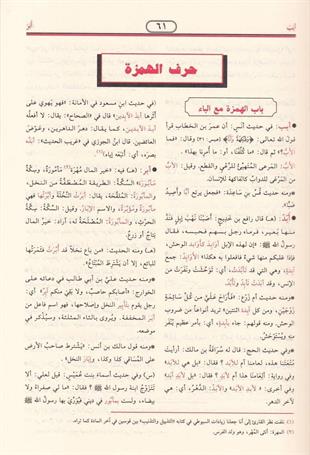 أبب
٦١
أبر
حرف الهمزة
باب الهمزة مع الباء
• أبب: في حديث أنس: أن عمر بن الخطاب قرأ
قول الله تعالى: ﴿وَفَاكِهَةً وَأَبًّا﴾
وقال: فما
الأبّ؟ ثم قال: ما كُلّفنا، أو: ما أمرنا بهذا.
الأبّ: المرعى المتهيئ للرعي والقطع، وقيل: الأبّ
من المرعى للدواب كالفاكهة للإنسان.
*ومنه حديث قس بن ساعدة: «فجعل يرتع أبًّا وأصيد
ضبًّا».
• أبد: (هـ) قال رافع بن خديج: أصبنا نهب إبل فندّ
منها بعير، فرماه رجل بسهم فحبسه، فقال
رسول الله ﷺ: «إن لهذه الإبل أوابد كأوابد الوحش،
فإذا غلبكم منها شيء فافعلوا به هكذا». الأوابد: جمع
آبدة، وهي التي قد تأبّدت، أي: توحّشت ونفرت من
الإنس. وقد أبدت تأبد وتأبُد.
*ومنه حديث أم زرع: «فأراح عليّ من كل سائمة
زوجين، ومن كل آبدة اثنتين» تريد أنواعًا من ضروب
الوحش. ومنه قولهم: جاء بآبدة، أي: بأمر عظيم ينفر
منه ويُستوحش.
*وفي حديث الحج: قال له سراقة بن مالك: أرأيت
متعتنا هذه، ألعامنا أم للأبد؟ فقال: «بل هي للأبد»
وفي رواية: ألعامنا هذا أم لأبد؟ فقال: «بل لأبد أبد»
وفي أخرى: «لأبد الأبد» والأبد: الدهر، أي: هي
لآخر الدهر.
(في حديث ابن مسعود في الأمانة: «فهو يهوي على
أثرها أبد الآبدين» قال في «الصحاح»: يقال: لا أفعله
أبد الآبدين، كما يقال: دهر الداهرين، وعوض
العائضين. قال ابن الجوزي في «غريب الحديث»: أبّد
بصره، أي: أتبعه إياه)(١).
• أبر: (هـ) فيه: «خير المال مُهرة(٢) مأمورة، وسكّة
مأبورة» السكة: الطريقة المصطفّة من النخل،
والمأبورة: الملقّحة، يقال: أبرت النخلة وأبّرتها فهي
مأبورة ومؤبّرة، والاسم الإبار. وقيل: السكة: سكة
الحرث، والمأبورة: المصلحة له، أراد: خير المال
نتاج أو زرع.
(هـ) ومنه الحديث: «من باع نخلًا قد أبّرت فثمرتها
للبائع، إلا أن يشترط المبتاع».
*ومنه حديث علي بن أبي طالب في دعائه على
الخوارج: «أصابكم حاصب، ولا بقي منكم آبر» أي:
رجل يقوم بتأبير النخل وإصلاحها، فهو اسم فاعل من
أبر المخففة. ويُروى بالثاء المثلثة، وسيُذكر في
موضعه.
*ومنه قول مالك بن أنس: «يشترط صاحب الأرض
على المساقي كذا وكذا، وإبار النخل».
(س) وفي حديث أسماء بنت عميس: قيل لعلي: ألا
تتزوج ابنة رسول الله ﷺ؟ فقال: «ما لي صفراء ولا
بيضاء، ولست بمأبور في ديني فيُورّي بها رسول الله ﷺ
(١) نلفت نظر القارئ إلى أنا جعلنا زيادات السيوطي في كتابه «التذييل والتذنيب» بين قوسين في آخر المادة كما تراه.
(٢) المهرة: أنثى المُهر، وهو ولد الفرس.